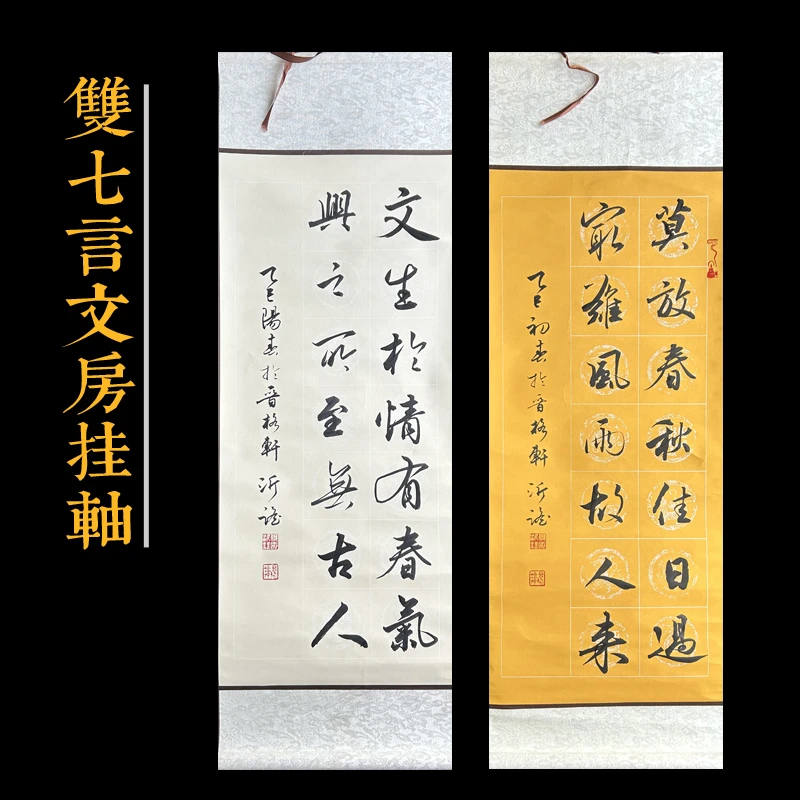 雙七言文房挂軸
文生於情有春氣
興之所至無古人
乙巳陽春於晉格軒 沂謐
莫放春秋佳日過
最難風雨故人來
乙巳初春於晉格軒 沂謐